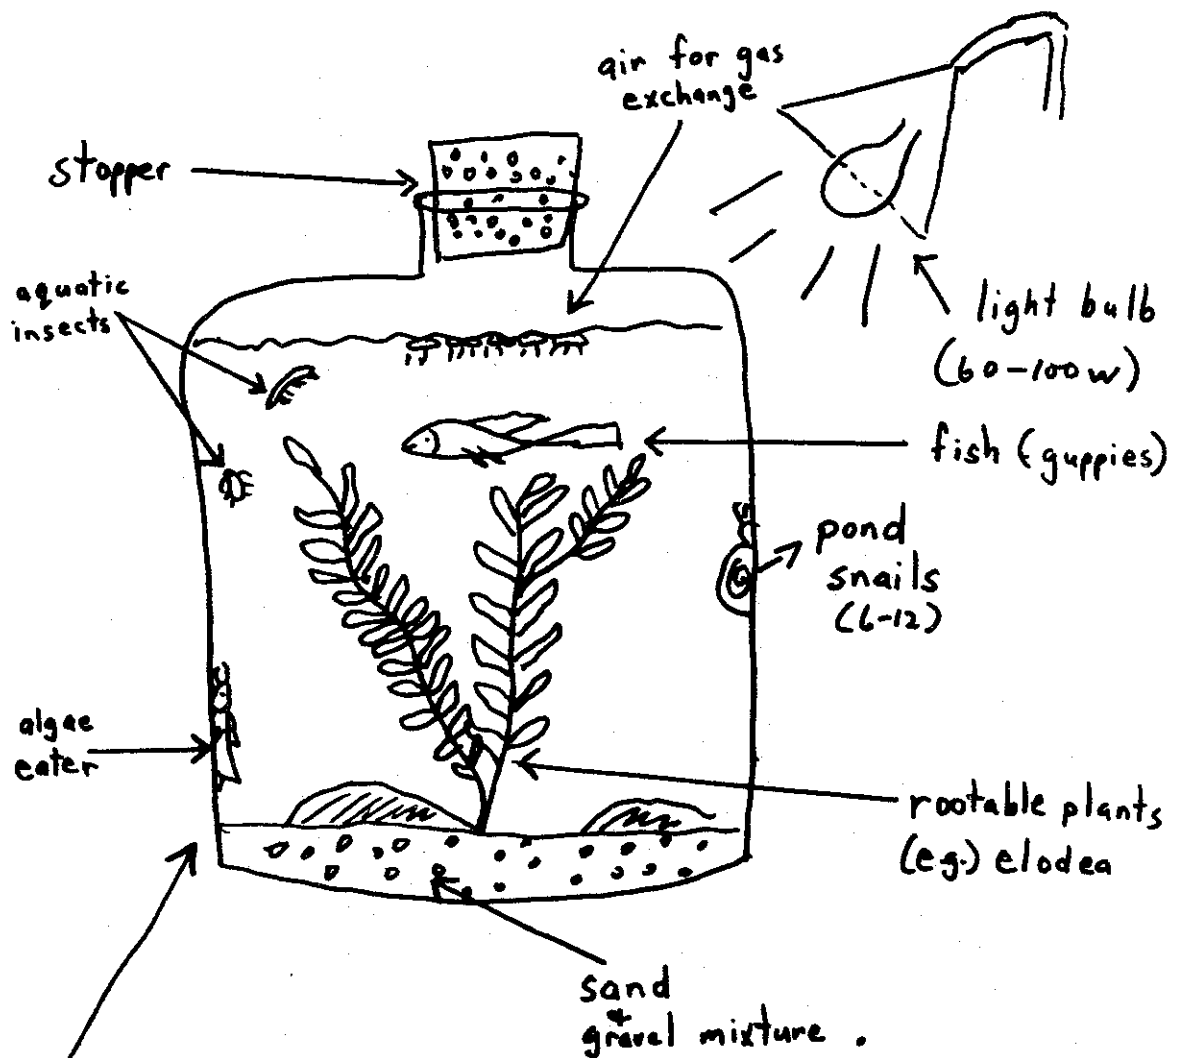 air for gas
exchange
stopper
aquatic
insects
light bulb
(60-100w)
fish (guppies)
pond
snails
(6-12)
algae
eater
rootable plants
(e.g.) elodea
sand
+
gravel mixture .